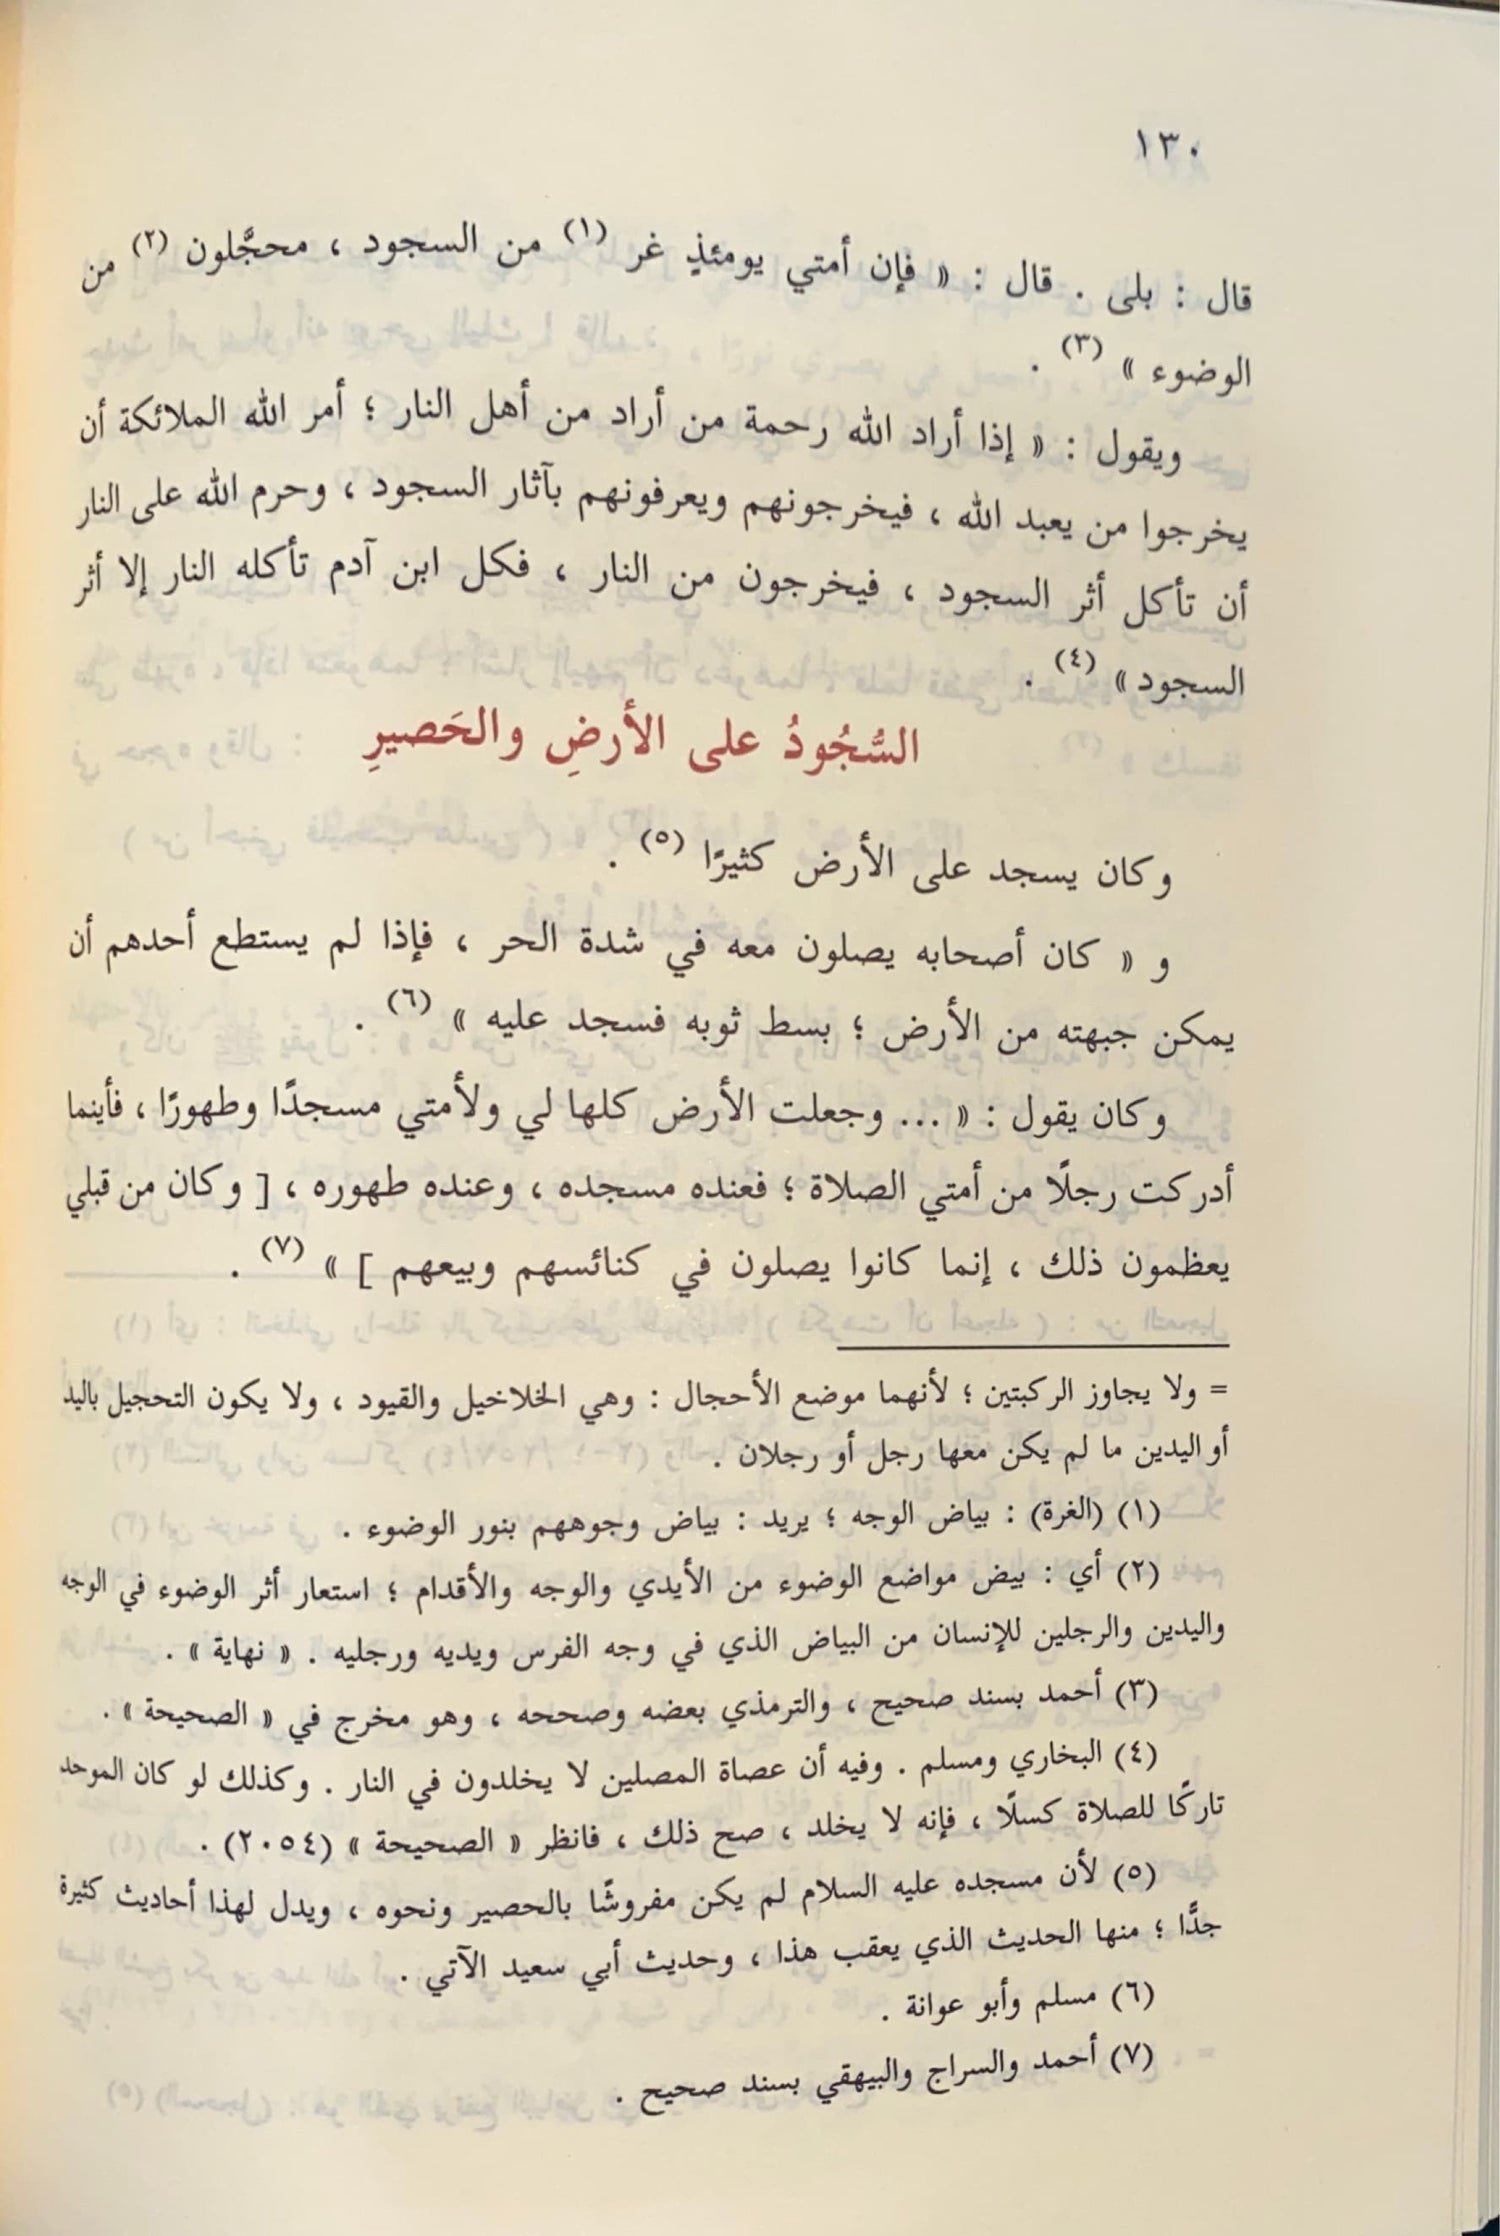 ١٣٠
قال : بلى . قال : « فإن أمتي يومئذٍ غر (١) من السجود ، محجَّلون (٢) من
الوضوء » (٣) .
ويقول : « إذا أراد الله رحمة من أراد من أهل النار ؛ أمر الله الملائكة أن
يخرجوا من يعبد الله ، فيخرجونهم ويعرفونهم بآثار السجود ، وحرم الله على النار
أن تأكل أثر السجود ، فيخرجون من النار ، فكل ابن آدم تأكله النار إلا أثر
السجود » (٤) .
السُّجُودُ على الأرضِ والحَصيرِ
وكان يسجد على الأرض كثيرًا (٥) .
و « كان أصحابه يصلون معه في شدة الحر ، فإذا لم يستطع أحدهم أن
يمكن جبهته من الأرض ؛ بسط ثوبه فسجد عليه » (٦) .
وكان يقول : « ... وجعلت الأرض كلها لي ولأمتي مسجدًا وطهورًا ، فأينما
أدركت رجلًا من أمتي الصلاة ؛ فعنده مسجده ، وعنده طهوره ، [ وكان من قبلي
يعظمون ذلك ، إنما كانوا يصلون في كنائسهم وبيعهم ] » (٧) .
= ولا يجاوز الركبتين ؛ لأنهما موضع الأحجال : وهي الخلاخيل والقيود ، ولا يكون التحجيل باليد
أو اليدين ما لم يكن معها رجل أو رجلان .
(١) (الغرة) : بياض الوجه ؛ يريد : بياض وجوههم بنور الوضوء .
(٢) أي : بيض مواضع الوضوء من الأيدي والوجه والأقدام ؛ استعار أثر الوضوء في الوجه
واليدين والرجلين للإنسان من البياض الذي في وجه الفرس ويديه ورجليه . « نهاية » .
(٣) أحمد بسند صحيح ، والترمذي بعضه وصححه ، وهو مخرج في « الصحيحة » .
(٤) البخاري ومسلم . وفيه أن عصاة المصلين لا يخلدون في النار . وكذلك لو كان الموحد
تاركًا للصلاة كسلًا ، فإنه لا يخلد ، صح ذلك ، فانظر « الصحيحة » (٢٠٥٤) .
(٥) لأن مسجده عليه السلام لم يكن مفروشًا بالحصير ونحوه ، ويدل لهذا أحاديث كثيرة
جدًّا ؛ منها الحديث الذي يعقب هذا ، وحديث أبي سعيد الآتي .
(٦) مسلم وأبو عوانة .
(٧) أحمد والسراج والبيهقي بسند صحيح .